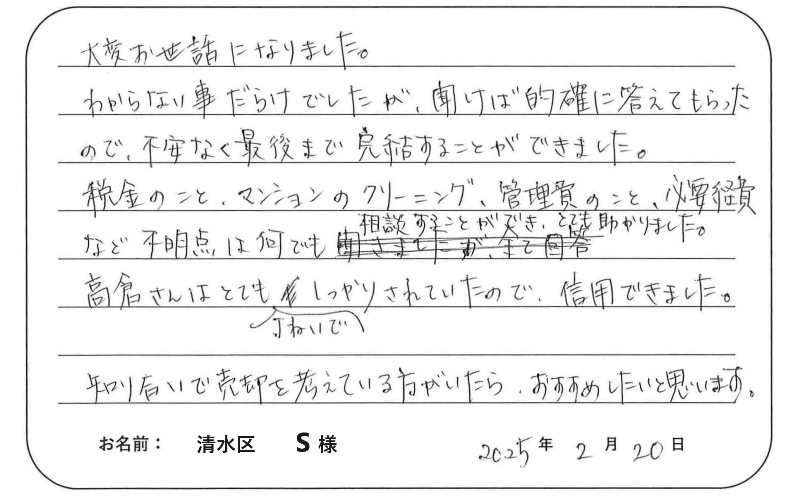 大変お世話になりました。
わからない事だらけでしたが、聞けば的確に答えてもらった
ので、不安なく最後まで完結することができました。
税金のこと、マンションのクリーニング、管理費のこと、必要経費
相談することができ、とても助かりました。
など不明点は何でも聞きましたが、全て回答
高倉さんはとてもしっかりされていたので、信用できました。
ていねいで
知り合いで売却を考えている方がいたら、おすすめしたいと思います。
お名前： 清水区 S 様 2025年 2月 20日